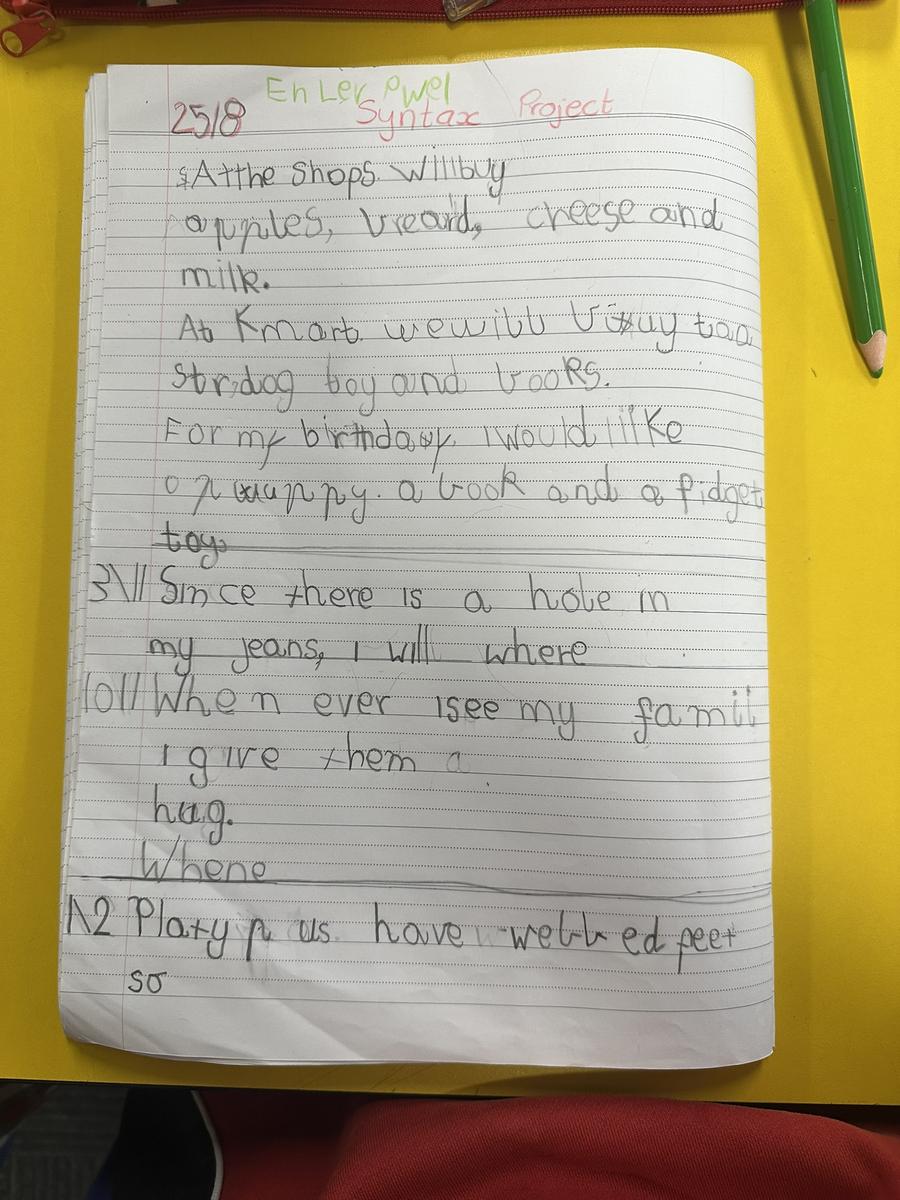 En Ler Pwel
25/8 Syntax Project
At the Shops. will buy
apples, breard, creese and
milk.
At Kmart. we will buy taa
Str,dog toy and books.
For my birthdawy. I would like
a puppy. a book and a fidget
toy.
3\11 Since there is a hole in
my jeans, I will where
10\11 When ever I see my famil
I give them a
hug.
Whene
\12 Platypus have webbed feet
so